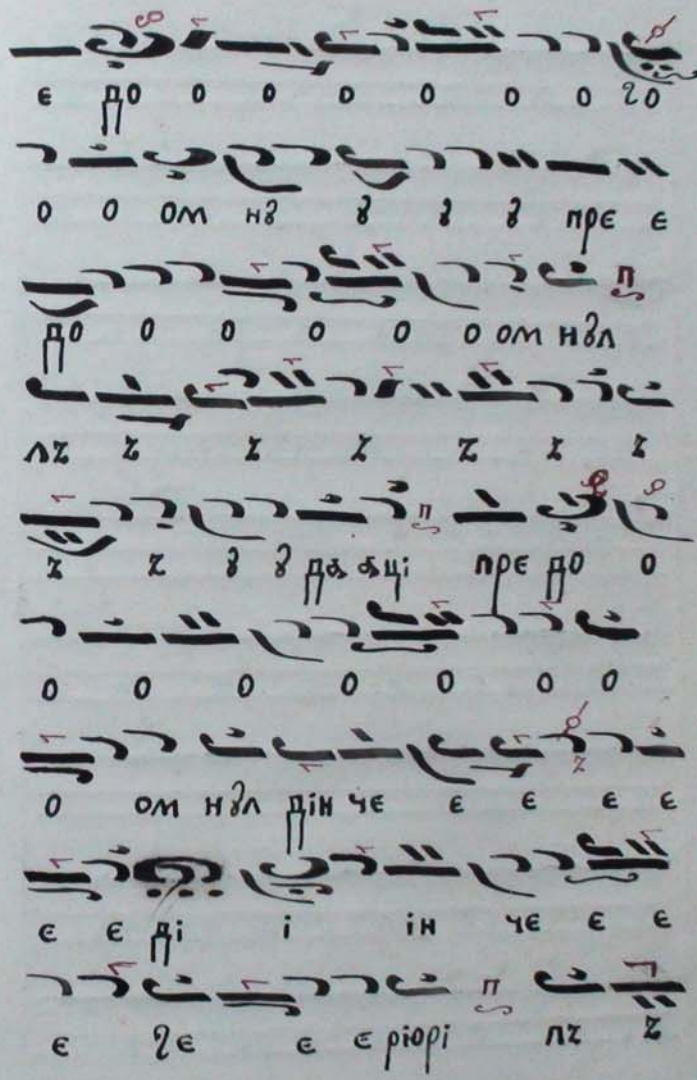 є до о о о о о о го
о о ом нꙋ ꙋ ꙋ ꙋ прє є
п
до о о о о о ом нꙋл
лъ ъ ъ ъ ъ ъ ъ
п
ъ ъ ꙋ ꙋ да аці прє до о
о о о о о о о
о ом нꙋл дін чє є є є є
є є ді і ін чє є є
п
є гє є є ріорі лъ ъ